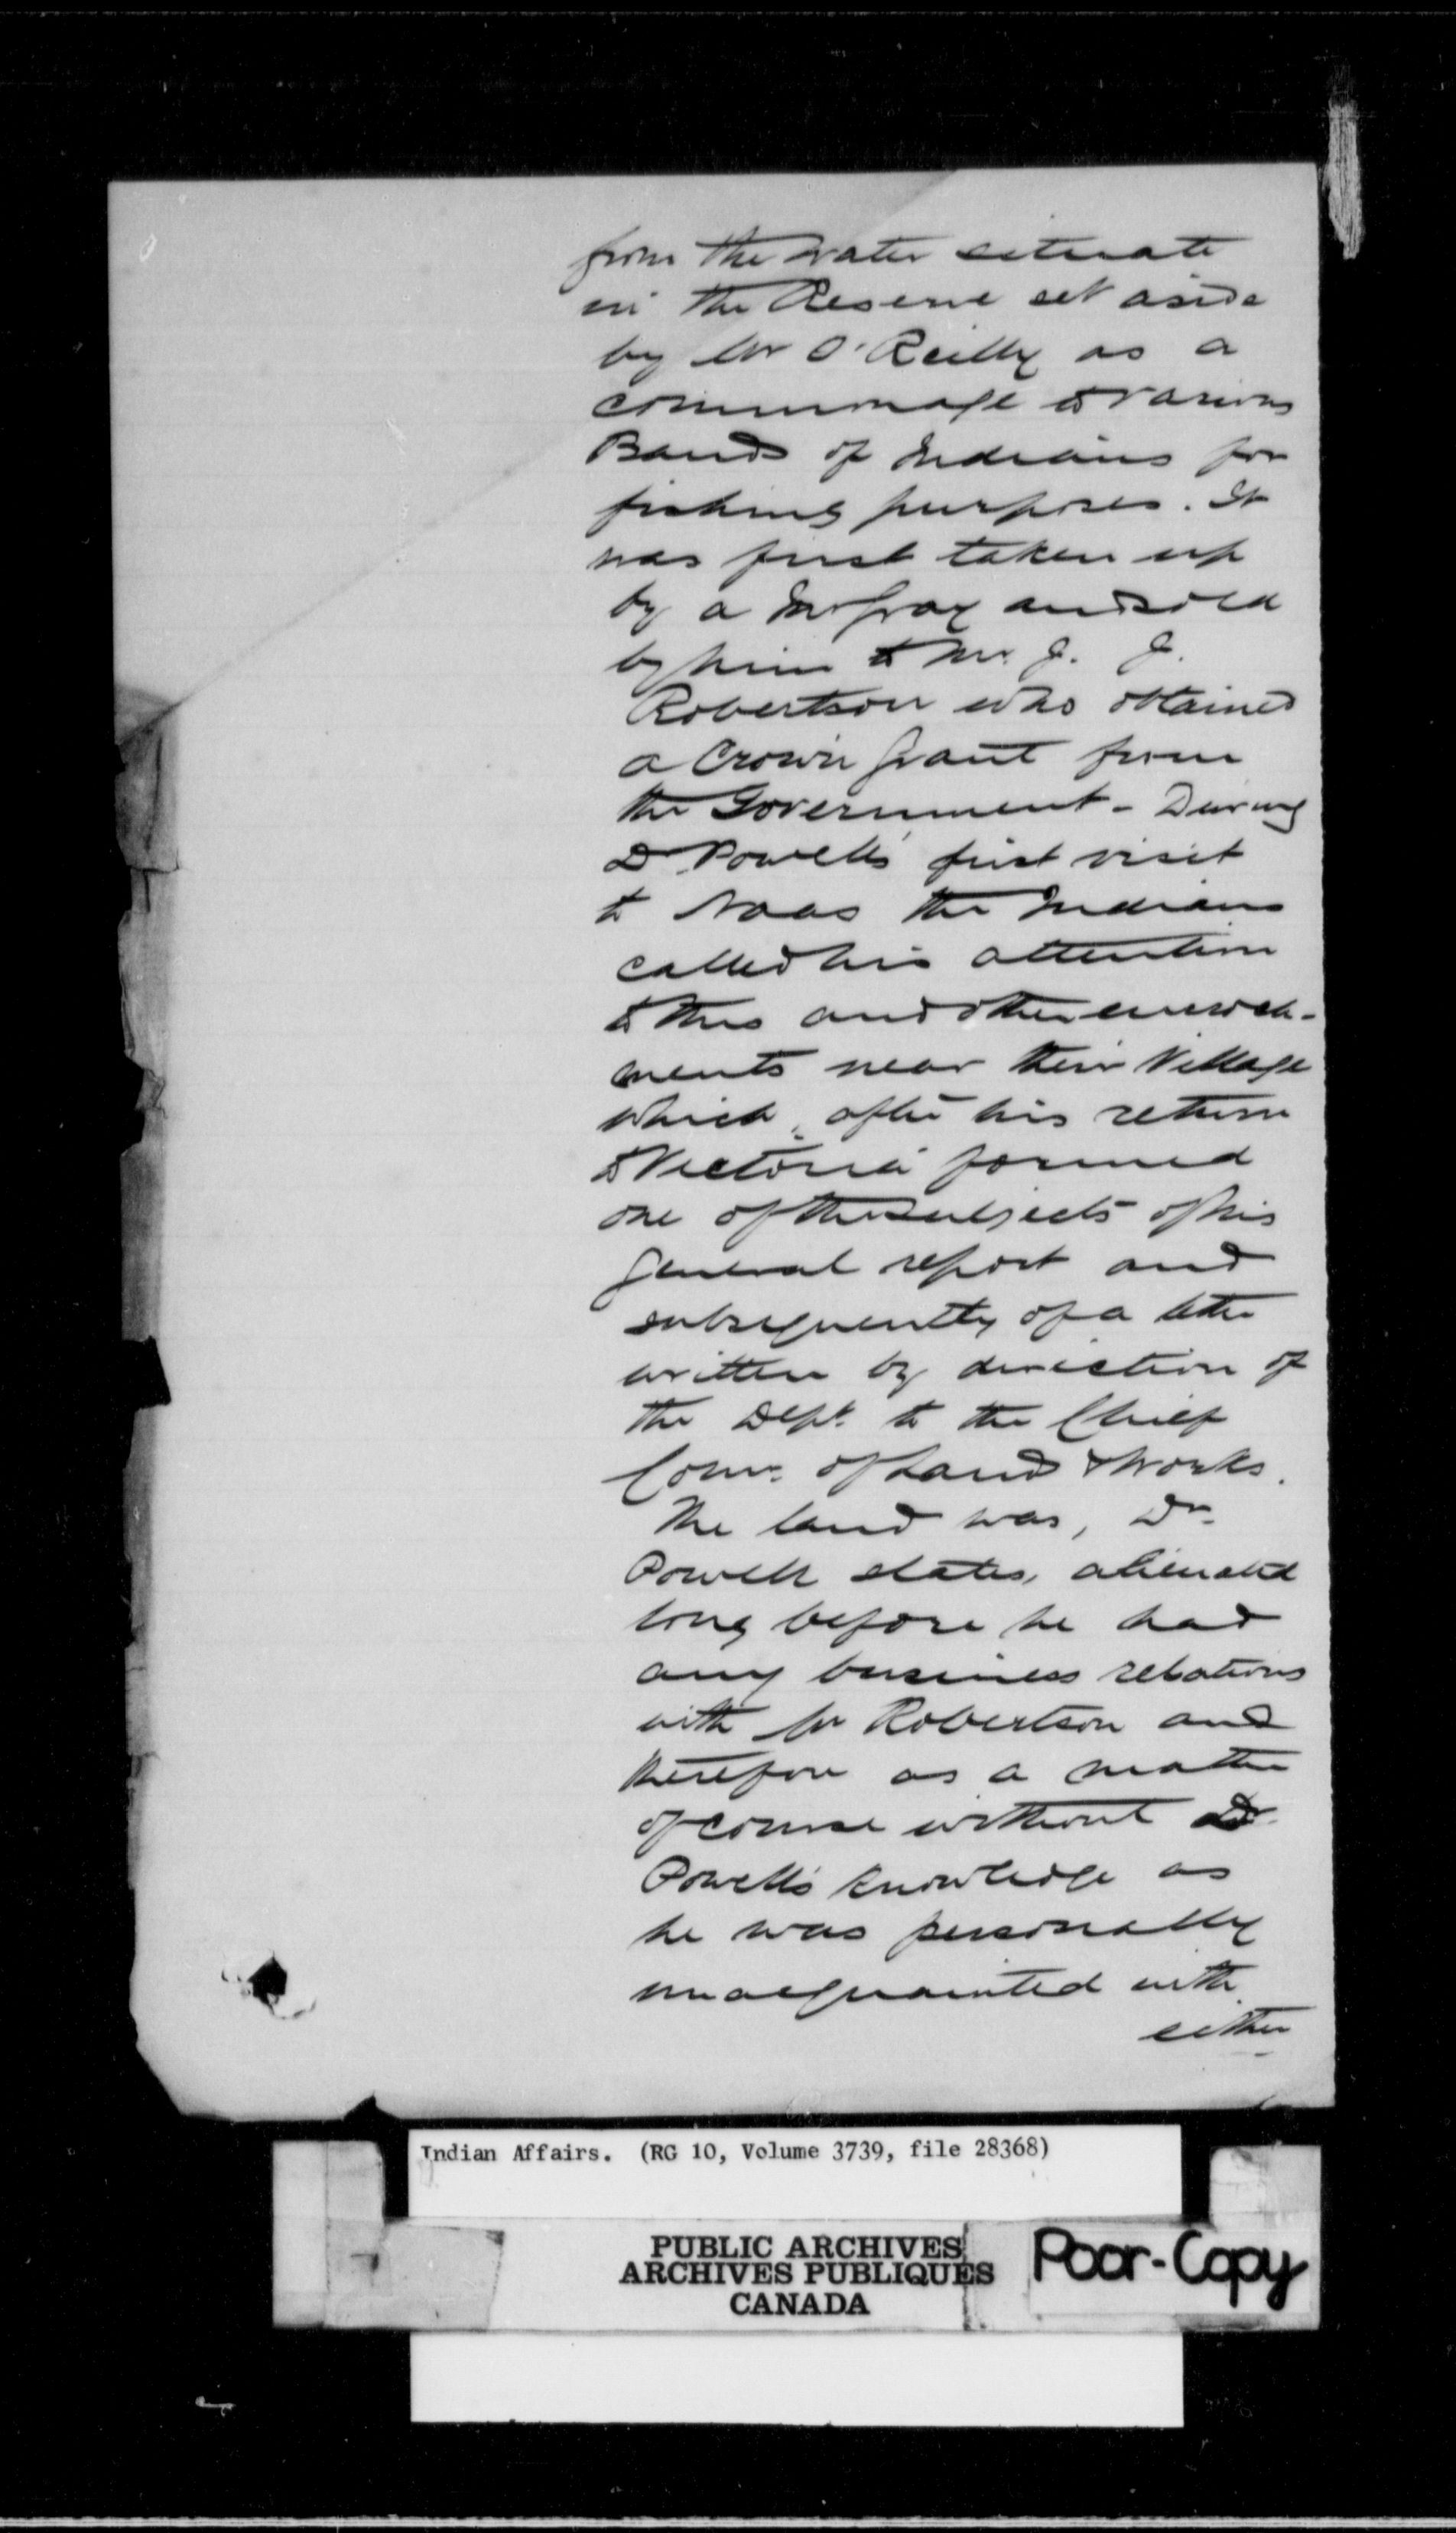 from the water situate
in the Reserve set aside
by Mr O'Reilly as a
commonage to various
Bands of Indians for
fishing purposes. It
was first taken up
by a Mr Gray and sold
by him to Mr. J. J.
Robertson who obtained
a Crown Grant from
the Government - During
Dr Powell's first visit
to Naas the Indians
called his attention
to this and other encroach-
ments near their Village
which, after his return
to Victoria formed
one of the subjects of his
general report and
subsequently of a letter
written by direction of
the Dept. to the Chief
Comr. of Land & Works.
The land was, Dr.
Powell states, alienated
long before he had
any business relations
with Mr Robertson and
therefore as a matter
of course without Dr.
Powell's knowledge as
he was personally
unacquainted with
either
Indian Affairs. (RG 10, Volume 3739, file 28368)
PUBLIC ARCHIVES
ARCHIVES PUBLIQUES
CANADA
Poor-Copy